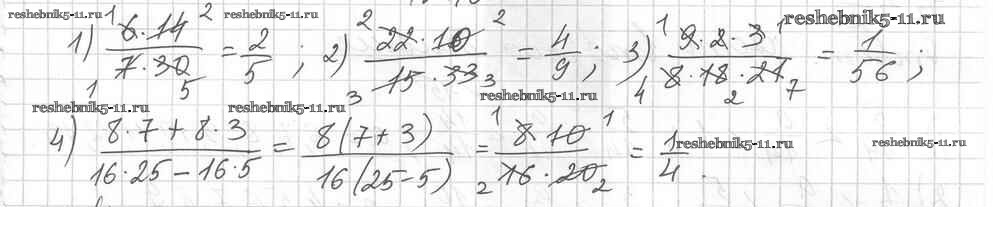 reshebnik5-11.ru reshebnik5-11.ru reshebnik5-11.ru
1) (6·14)/(7·30) = 2/5 ; 2) (22·10)/(15·33) = 4/9 ; 3) (9·2·3)/(8·18·21) = 1/56 ;
reshebnik5-11.ru reshebnik5-11.ru reshebnik5-11.ru
4) (8·7+8·3)/(16·25−16·5) = 8(7+3)/16(25−5) = (8·10)/(16·20) = 1/4 .
reshebnik5-11.ru reshebnik5-11.ru